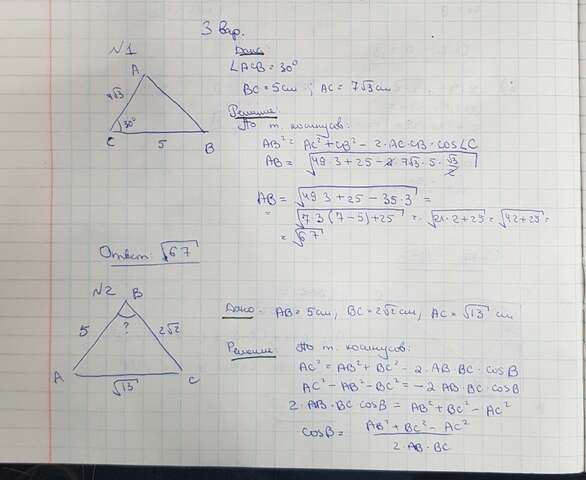 3 вар.
№1
Дано:
∠ACB = 30°
BC = 5 см ; AC = 7√3 см
A
7√3
30°
C 5 B
Решение:
По т. косинусов:
AB² = AC² + CB² - 2·AC·CB·cos∠C
AB = √(49·3 + 25 - 2·7√3·5·√3/2)
AB = √(49·3 + 25 - 35·3) =
= √(7·3(7-5)+25) = √(21·2+25) = √(42+25) =
= √67
Ответ: √67
№2
B
5 ? 2√2
A √13 C
Дано: AB = 5 см; BC = 2√2 см, AC = √13 см
Решение: По т. косинусов:
AC² = AB² + BC² - 2·AB·BC·cosB
AC² - AB² - BC² = -2·AB·BC·cosB
2·AB·BC·cosB = AB² + BC² - AC²
cosB = (AB² + BC² - AC²)/(2·AB·BC)